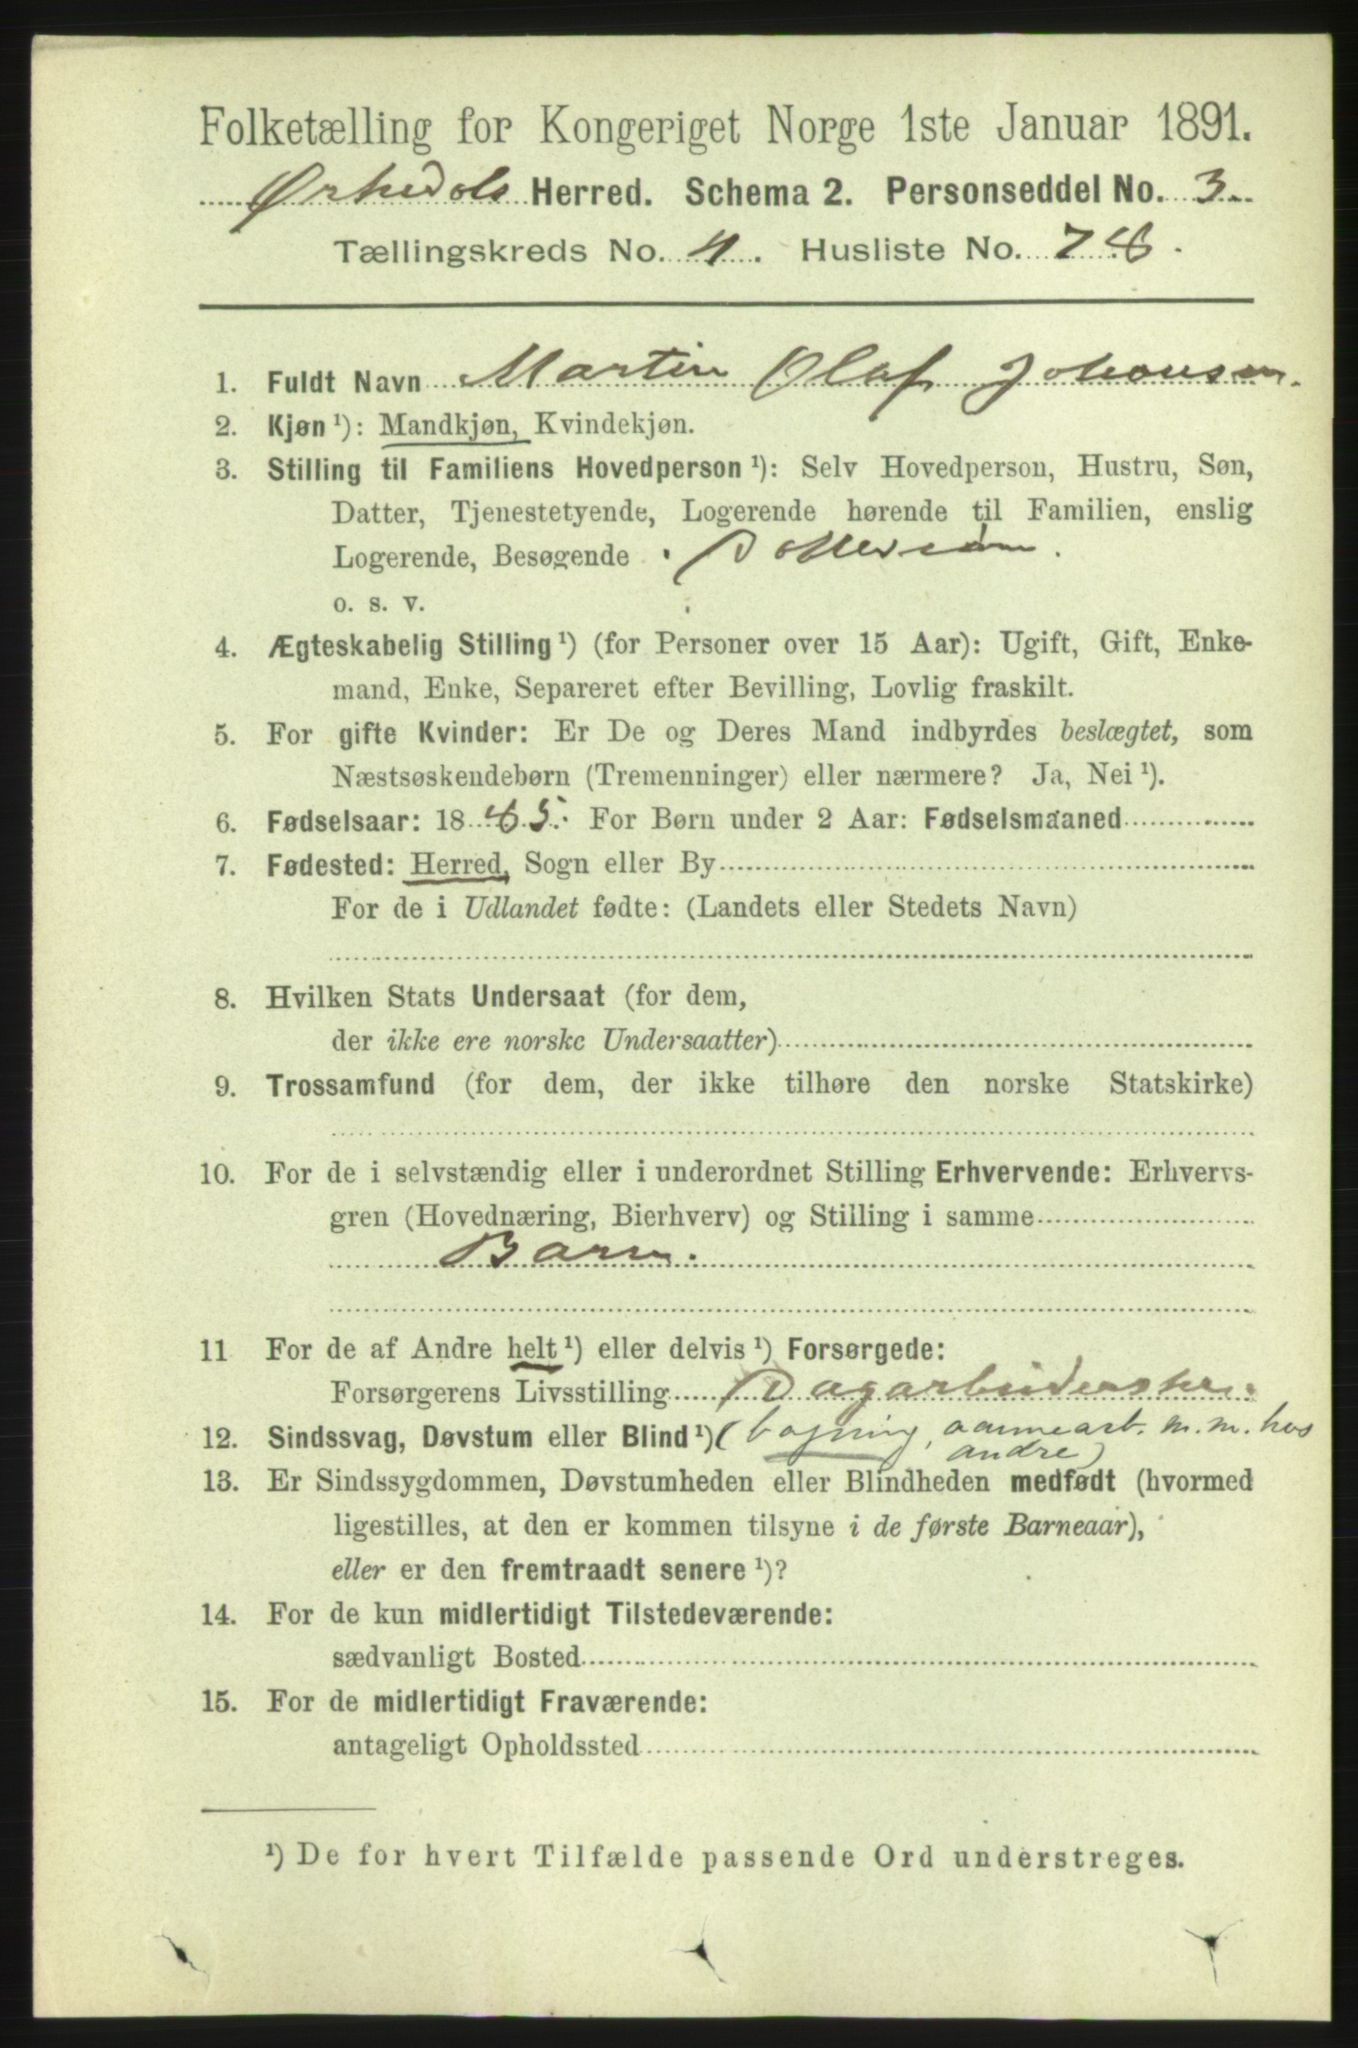 Folketælling for Kongeriget Norge 1ste Januar 1891.
Ørkedals Herred. Schema 2. Personseddel No. 3
Tællingskreds No. 4. Husliste No. 78.
1. Fuldt Navn Martin Olaf Johansen.
2. Kjøn ¹): Mandkjøn, Kvindekjøn.
3. Stilling til Familiens Hovedperson ¹): Selv Hovedperson, Hustru, Søn,
Datter, Tjenestetyende, Logerende hørende til Familien, enslig
Logerende, Besøgende Dattersøn.
o. s. v.
4. Ægteskabelig Stilling ¹) (for Personer over 15 Aar): Ugift, Gift, Enke-
mand, Enke, Separeret efter Bevilling, Lovlig fraskilt.
5. For gifte Kvinder: Er De og Deres Mand indbyrdes beslægtet, som
Næstsøskendebørn (Tremenninger) eller nærmere? Ja, Nei ¹).
6. Fødselsaar: 1885. For Børn under 2 Aar: Fødselsmaaned
7. Fødested: Herred, Sogn eller By
For de i Udlandet fødte: (Landets eller Stedets Navn)
8. Hvilken Stats Undersaat (for dem,
der ikke ere norske Undersaatter)
9. Trossamfund (for dem, der ikke tilhøre den norske Statskirke)
10. For de i selvstændig eller i underordnet Stilling Erhvervende: Erhvervs-
gren (Hovednæring, Bierhverv) og Stilling i samme
Barn.
11 For de af Andre helt ¹) eller delvis ¹) Forsørgede:
Forsørgerens Livsstilling Dagarbeiderske.
12. Sindssvag, Døvstum eller Blind ¹) (bagning, aannearb. m.m. hos
andre)
13. Er Sindssygdommen, Døvstumheden eller Blindheden medfødt (hvormed
ligestilles, at den er kommen tilsyne i de første Barneaar),
eller er den fremtraadt senere ¹)?
14. For de kun midlertidigt Tilstedeværende:
sædvanligt Bosted
15. For de midlertidigt Fraværende:
antageligt Opholdssted
¹) De for hvert Tilfælde passende Ord understreges.